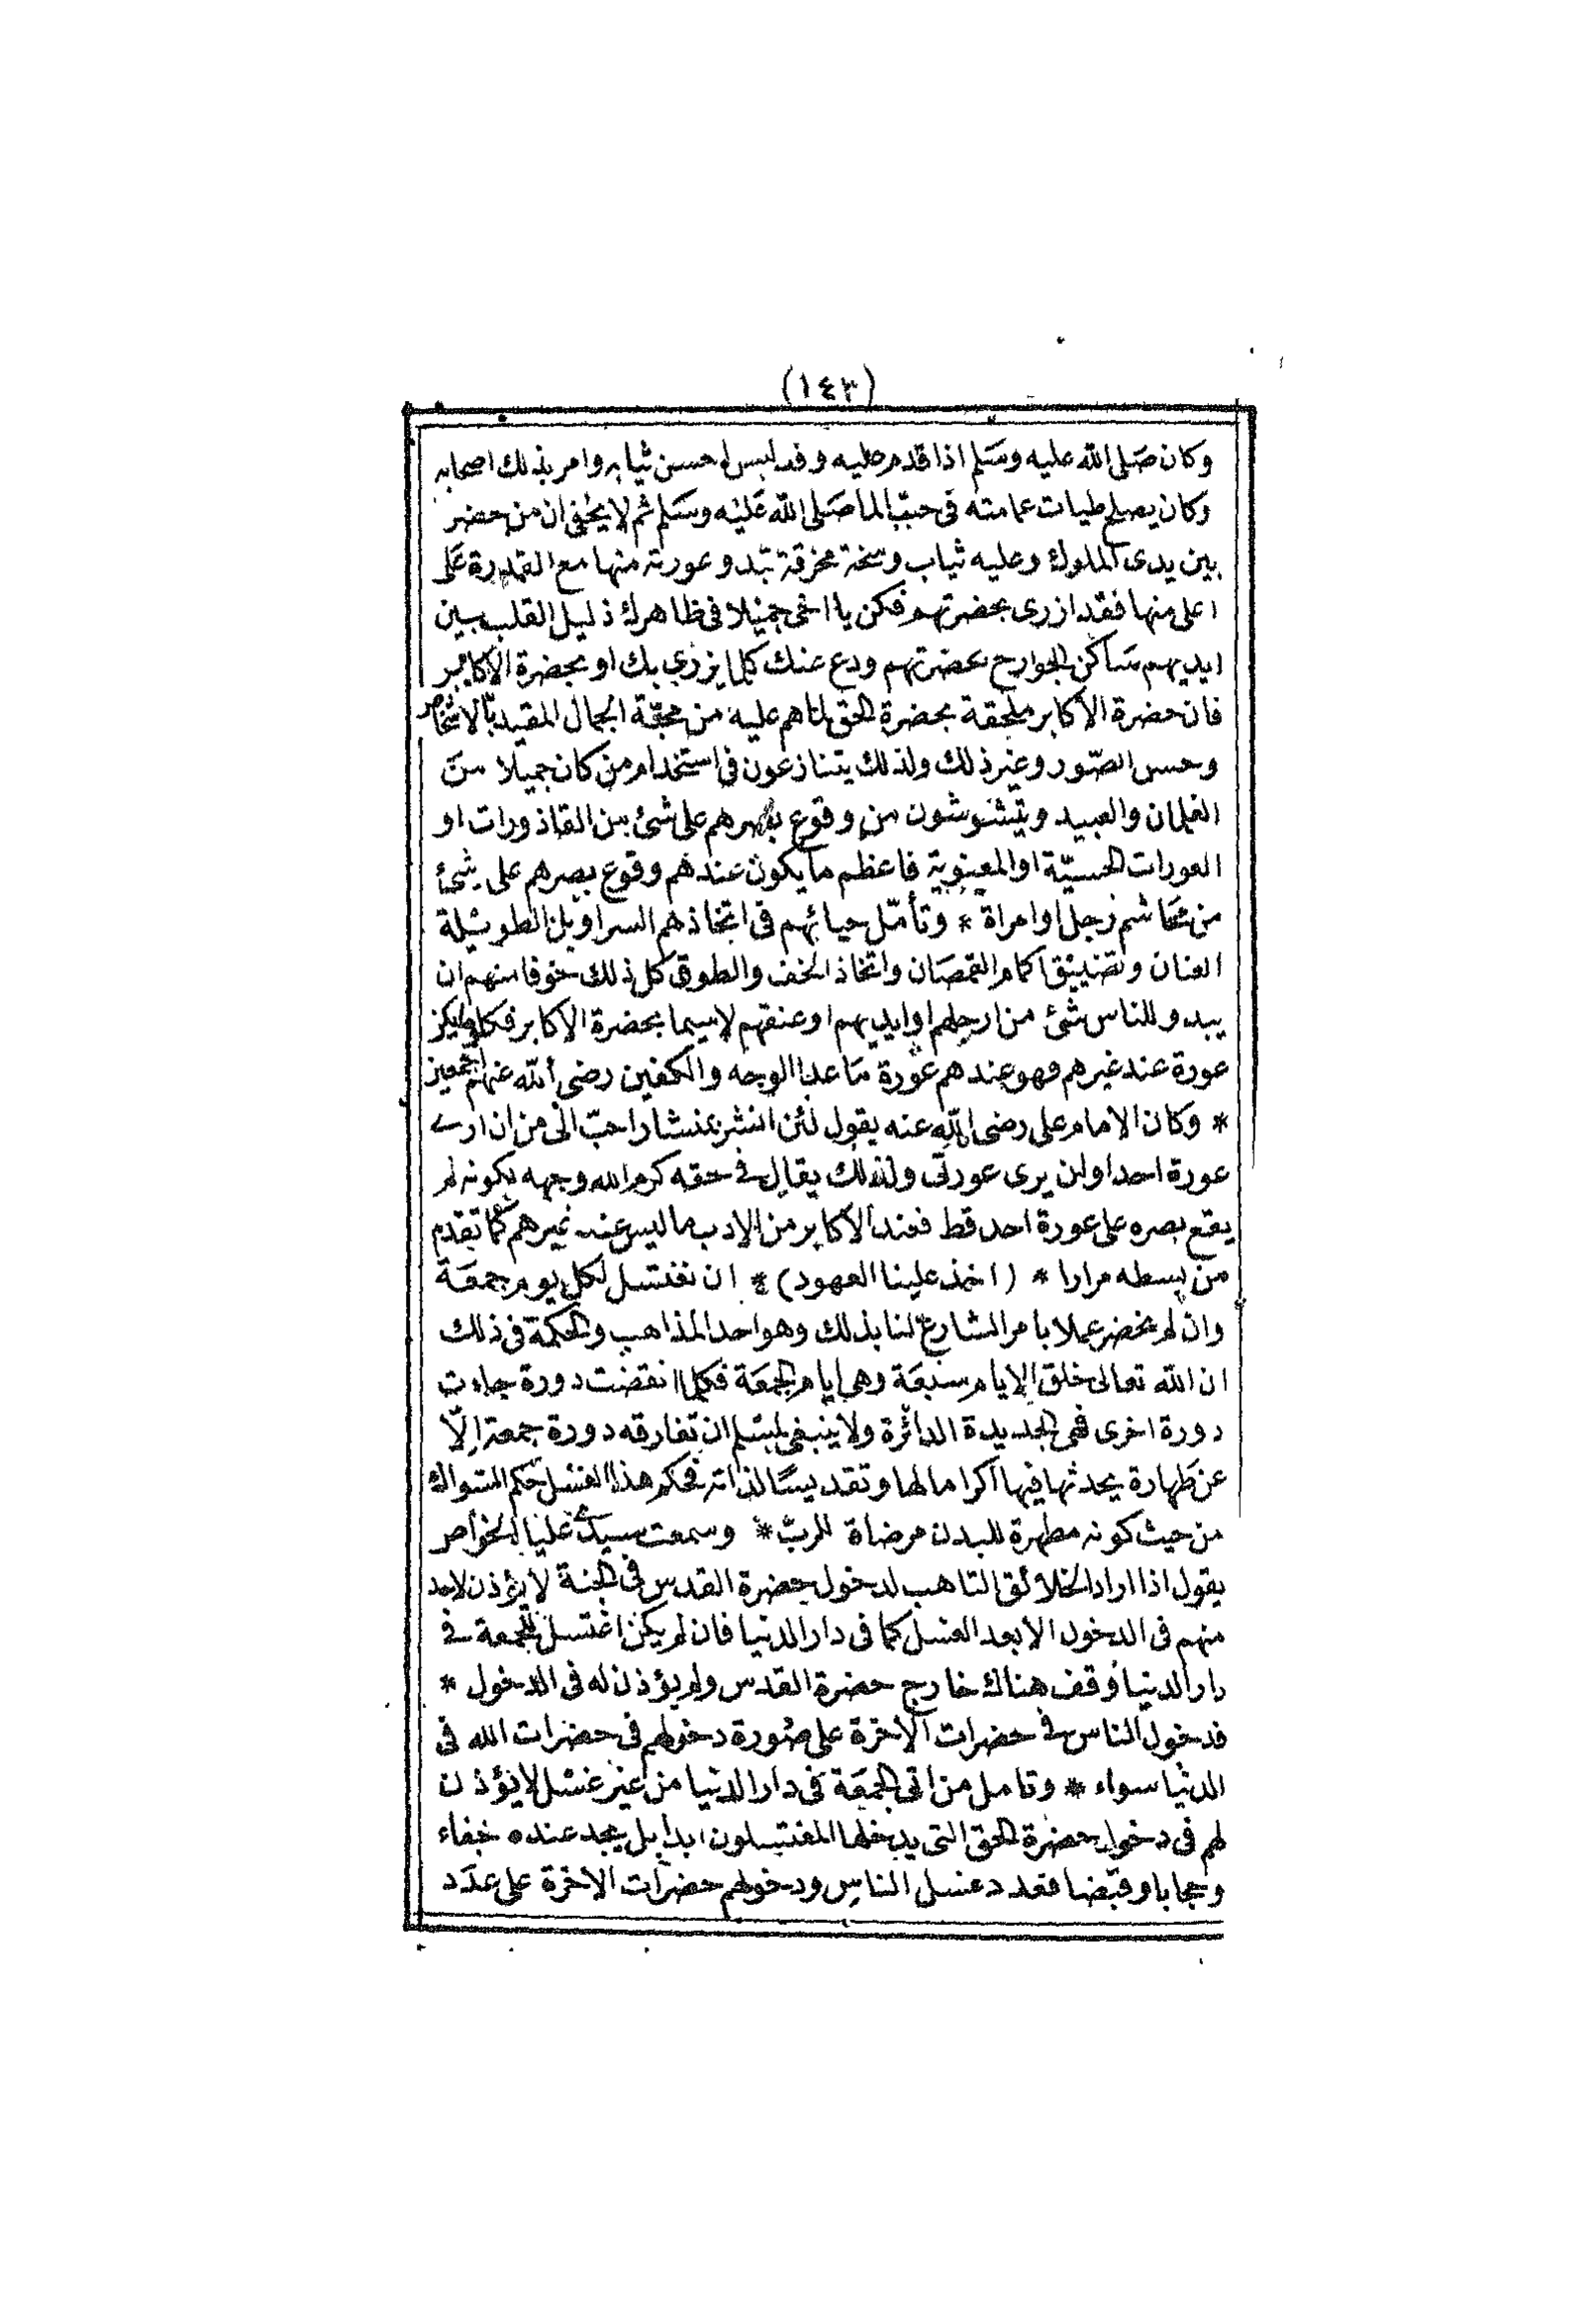 (١٤٣)
وكان صلى الله عليه وسلم اذا قدم عليه وفد لبس احسن ثيابه وامر بذلك اصحابه
وكان يصلح طيات عمامته فى حبّ الما صلى الله عليه وسلم ثم لا يخفى ان من حضر
بين يدى الملوك وعليه ثياب وسخة مخرقة تبدو عورته منها مع القدرة على
اعلى منها فقد ازرى بحضرتهم فكن يا اخى جميلا فى ظاهرك ذليل القلب بين
ايديهم ساكن الجوارح بحضرتهم ودع عنك كلما يزري بك او بحضرة الاكابر
فان حضرة الاكابر ملحقة بحضرة الحق لما هم عليه من محبّة الجمال المقيد بالاشخاص
وحسن الصّور وغير ذلك ولذلك يتنازعون فى استخدام من كان جميلا من
الغلمان والعبيد ويتشوشون من وقوع بصرهم على شئ من القاذورات او
العورات الحسيّة او المعنوية فاعظم ما يكون عندهم وقوع بصرهم على شئ
من محاشم رجل او امراة * وتأمّل حيائهم فى اتخاذهم السراويل الطويلة
الفنان وتضييق اكمام القمصان واتخاذ الخف والطوق كل ذلك خوفا منهم ان
يبدو للناس شئ من ارجلهم او ايديهم او عنقهم لاسيما بحضرة الاكابر فكلما يكن
عورة عند غيرهم فهو عندهم عورة ما عدا الوجه والكفين رضى الله عنهم اجمعين
* وكان الامام على رضى الله عنه يقول لئن انشر بمنشار احبّ الىّ من ان ارى
عورة احد اولن يرى عورتى ولذلك يقال فى حقه كرم الله وجهه لكونه لم
يقع بصره على عورة احد قط فعند الاكابر من الادب ما ليس عند غيرهم كما تقدم
من بسطه مرارا * (اخذ علينا العهود) * ان نغتسل لكل يوم جمعة
وان لم نحضر عملا بامر الشارع لنا بذلك وهو احد المذاهب والحكمة فى ذلك
ان الله تعالى خلق الايام سبعة وهى ايام الجمعة فكلما انقضت دورة جاءت
دورة اخرى فهى الجديدة الدائرة ولا ينبغى لمسلم ان تفارقه دورة جمعة الّا
عن طهارة يحدثها فيها اكراما لها وتقديسًا لذاته فحكم هذا الغسل حكم السواك
من حيث كونه مطهرة للبدن مرضاة للربّ * وسمعت سيدى عليا الخواص
يقول اذا اراد الخلائق التاهب لدخول حضرة القدس فى الجنة لا يؤذن لاحد
منهم فى الدخول الا بعد الغسل كما فى دار الدنيا فان لم يكن اغتسل للجمعة فى
دار الدنيا وقف هناك خارج حضرة القدس ولم يؤذن له فى الدخول *
فدخول الناس فى حضرات الآخرة على صورة دخولهم فى حضرات الله فى
الدنيا سواء * وتامل من اتى الجمعة فى دار الدنيا من غير غسل لا يؤذن
لهم فى دخول حضرة الحق التى يدخلها المغتسلون ابدا بل يجد عنده خفاء
وحجابا وقبضا فعدد غسل الناس ودخولهم حضرات الاخرة على عدد